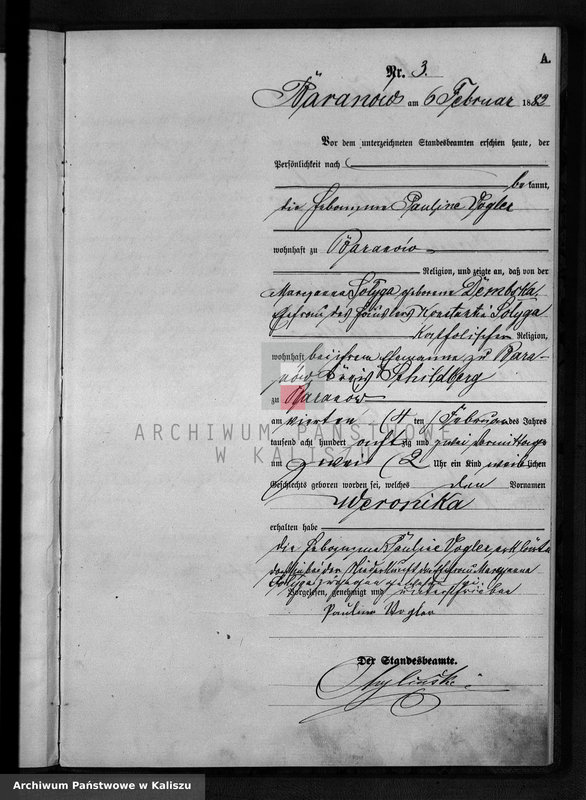 A.
Nr. 3.
Baranów am 6 Februar 1882
Vor dem unterzeichneten Standesbeamten erschien heute, der
Persönlichkeit nach
bekannt,
die Hebamme Pauline Vogler
wohnhaft zu Baranów
Religion, und zeigte an, daß von der
Maryanna Solyga geborene Dembska
Ehefrau des Häuslers Konstantin Solyga
Katholischer Religion,
wohnhaft bei ihrem Ehemanne zu Bara-
nów Kreis Schildberg
zu Baranow
am vierten (4 ten Februar des Jahres
tausend acht hundert achtzig und zwei Vormittags
um zwei (2 Uhr ein Kind weiblichen
Geschlechts geboren worden sei, welches den Vornamen
Weronika
erhalten habe
die Hebamme Pauline Vogler erklärte
daß sie bei der Niederkunft der Ehefrau Maryanna
Solyga zugegen gewesen sei.
Vorgelesen, genehmigt und unterschrieben
Pauline Vogler
Der Standesbeamte.
ARCHIWUM PAŃSTWOWE
W KALISZU
Archiwum Państwowe w Kaliszu